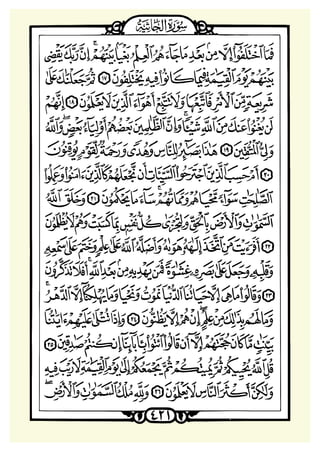 سُورَةُ الْجَاثِيَةِ
فَمَا اخْتَلَفُوا إِلَّا مِنْ بَعْدِ مَا جَاءَهُمُ الْعِلْمُ بَغْيًا بَيْنَهُمْ ۚ إِنَّ رَبَّكَ يَقْضِي
بَيْنَهُمْ يَوْمَ الْقِيَٰمَةِ فِيمَا كَانُوا فِيهِ يَخْتَلِفُونَ ١٧ ثُمَّ جَعَلْنَٰكَ عَلَىٰ
شَرِيعَةٍ مِنَ الْأَمْرِ فَاتَّبِعْهَا وَلَا تَتَّبِعْ أَهْوَاءَ الَّذِينَ لَا يَعْلَمُونَ ١٨ إِنَّهُمْ
لَنْ يُغْنُوا عَنْكَ مِنَ اللَّهِ شَيْئًا ۚ وَإِنَّ الظَّٰلِمِينَ بَعْضُهُمْ أَوْلِيَاءُ بَعْضٍ ۖ وَاللَّهُ
وَلِيُّ الْمُتَّقِينَ ١٩ هَٰذَا بَصَٰئِرُ لِلنَّاسِ وَهُدًى وَرَحْمَةٌ لِقَوْمٍ يُوقِنُونَ
٢٠ أَمْ حَسِبَ الَّذِينَ اجْتَرَحُوا السَّيِّئَاتِ أَنْ نَجْعَلَهُمْ كَالَّذِينَ آمَنُوا وَعَمِلُوا
الصَّٰلِحَٰتِ سَوَاءً مَحْيَاهُمْ وَمَمَاتُهُمْ ۚ سَاءَ مَا يَحْكُمُونَ ٢١ وَخَلَقَ اللَّهُ
السَّمَٰوَٰتِ وَالْأَرْضَ بِالْحَقِّ وَلِتُجْزَىٰ كُلُّ نَفْسٍ بِمَا كَسَبَتْ وَهُمْ لَا يُظْلَمُونَ
٢٢ أَفَرَأَيْتَ مَنِ اتَّخَذَ إِلَٰهَهُ هَوَاهُ وَأَضَلَّهُ اللَّهُ عَلَىٰ عِلْمٍ وَخَتَمَ عَلَىٰ سَمْعِهِ
وَقَلْبِهِ وَجَعَلَ عَلَىٰ بَصَرِهِ غِشَٰوَةً فَمَنْ يَهْدِيهِ مِنْ بَعْدِ اللَّهِ ۚ أَفَلَا تَذَكَّرُونَ
٢٣ وَقَالُوا مَا هِيَ إِلَّا حَيَاتُنَا الدُّنْيَا نَمُوتُ وَنَحْيَا وَمَا يُهْلِكُنَا إِلَّا الدَّهْرُ ۚ
وَمَا لَهُمْ بِذَٰلِكَ مِنْ عِلْمٍ ۖ إِنْ هُمْ إِلَّا يَظُنُّونَ ٢٤ وَإِذَا تُتْلَىٰ عَلَيْهِمْ آيَٰتُنَا
بَيِّنَٰتٍ مَا كَانَ حُجَّتَهُمْ إِلَّا أَنْ قَالُوا ائْتُوا بِآبَائِنَا إِنْ كُنْتُمْ صَٰدِقِينَ ٢٥
قُلِ اللَّهُ يُحْيِيكُمْ ثُمَّ يُمِيتُكُمْ ثُمَّ يَجْمَعُكُمْ إِلَىٰ يَوْمِ الْقِيَٰمَةِ لَا رَيْبَ فِيهِ
وَلَٰكِنَّ أَكْثَرَ النَّاسِ لَا يَعْلَمُونَ ٢٦ وَلِلَّهِ مُلْكُ السَّمَٰوَٰتِ وَالْأَرْضِ ۚ
٤٢١